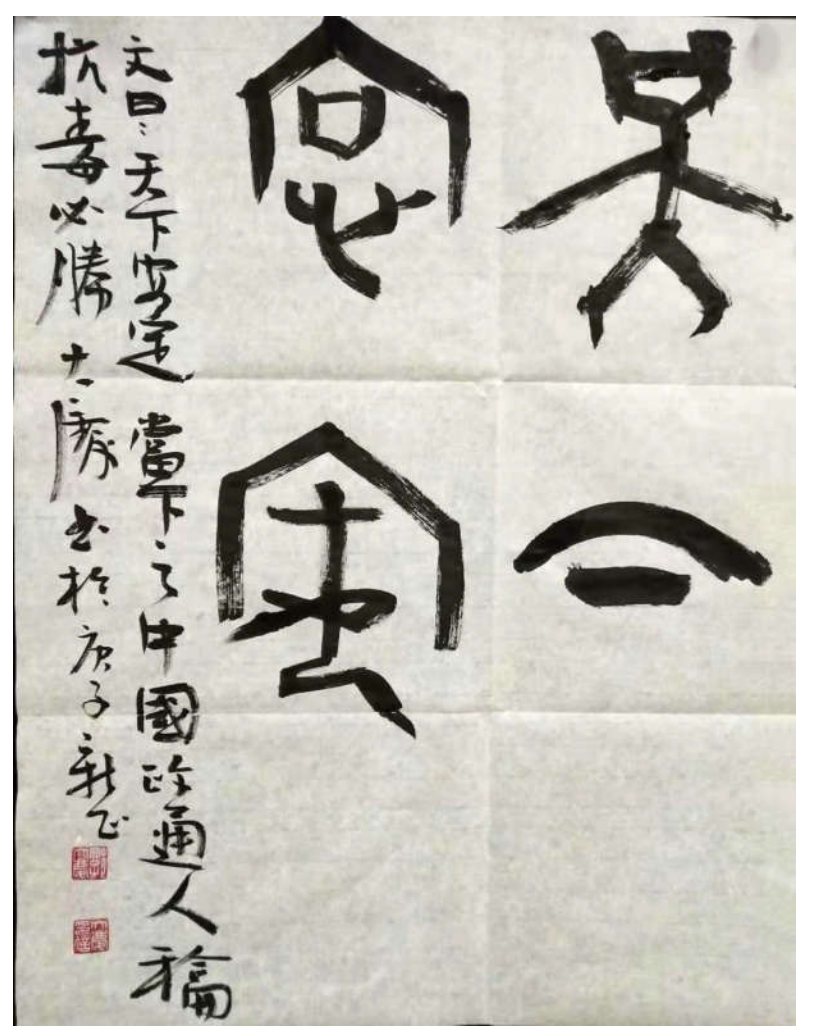 天下
安定
文曰:天下安定 當下之中國政通人龢
抗毒必勝 书於庚子新正